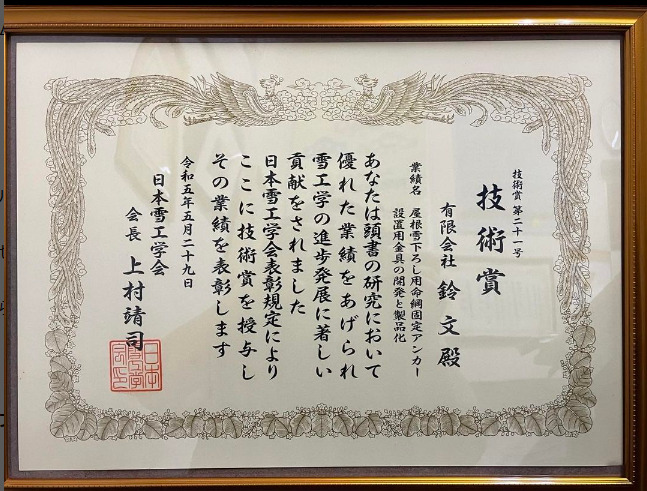 技術賞 第二十一号
技術賞
有限会社 鈴文殿
業績名 屋根雪下ろし用命綱固定アンカー
設置用金具の開発と製品化
あなたは頭書の研究において
優れた業績をあげられ
雪工学の進歩発展に著しい
貢献をされました
日本雪工学会表彰規定により
ここに技術賞を授与し
その業績を表彰します
令和五年五月二十九日
日本雪工学会
会長 上村靖司